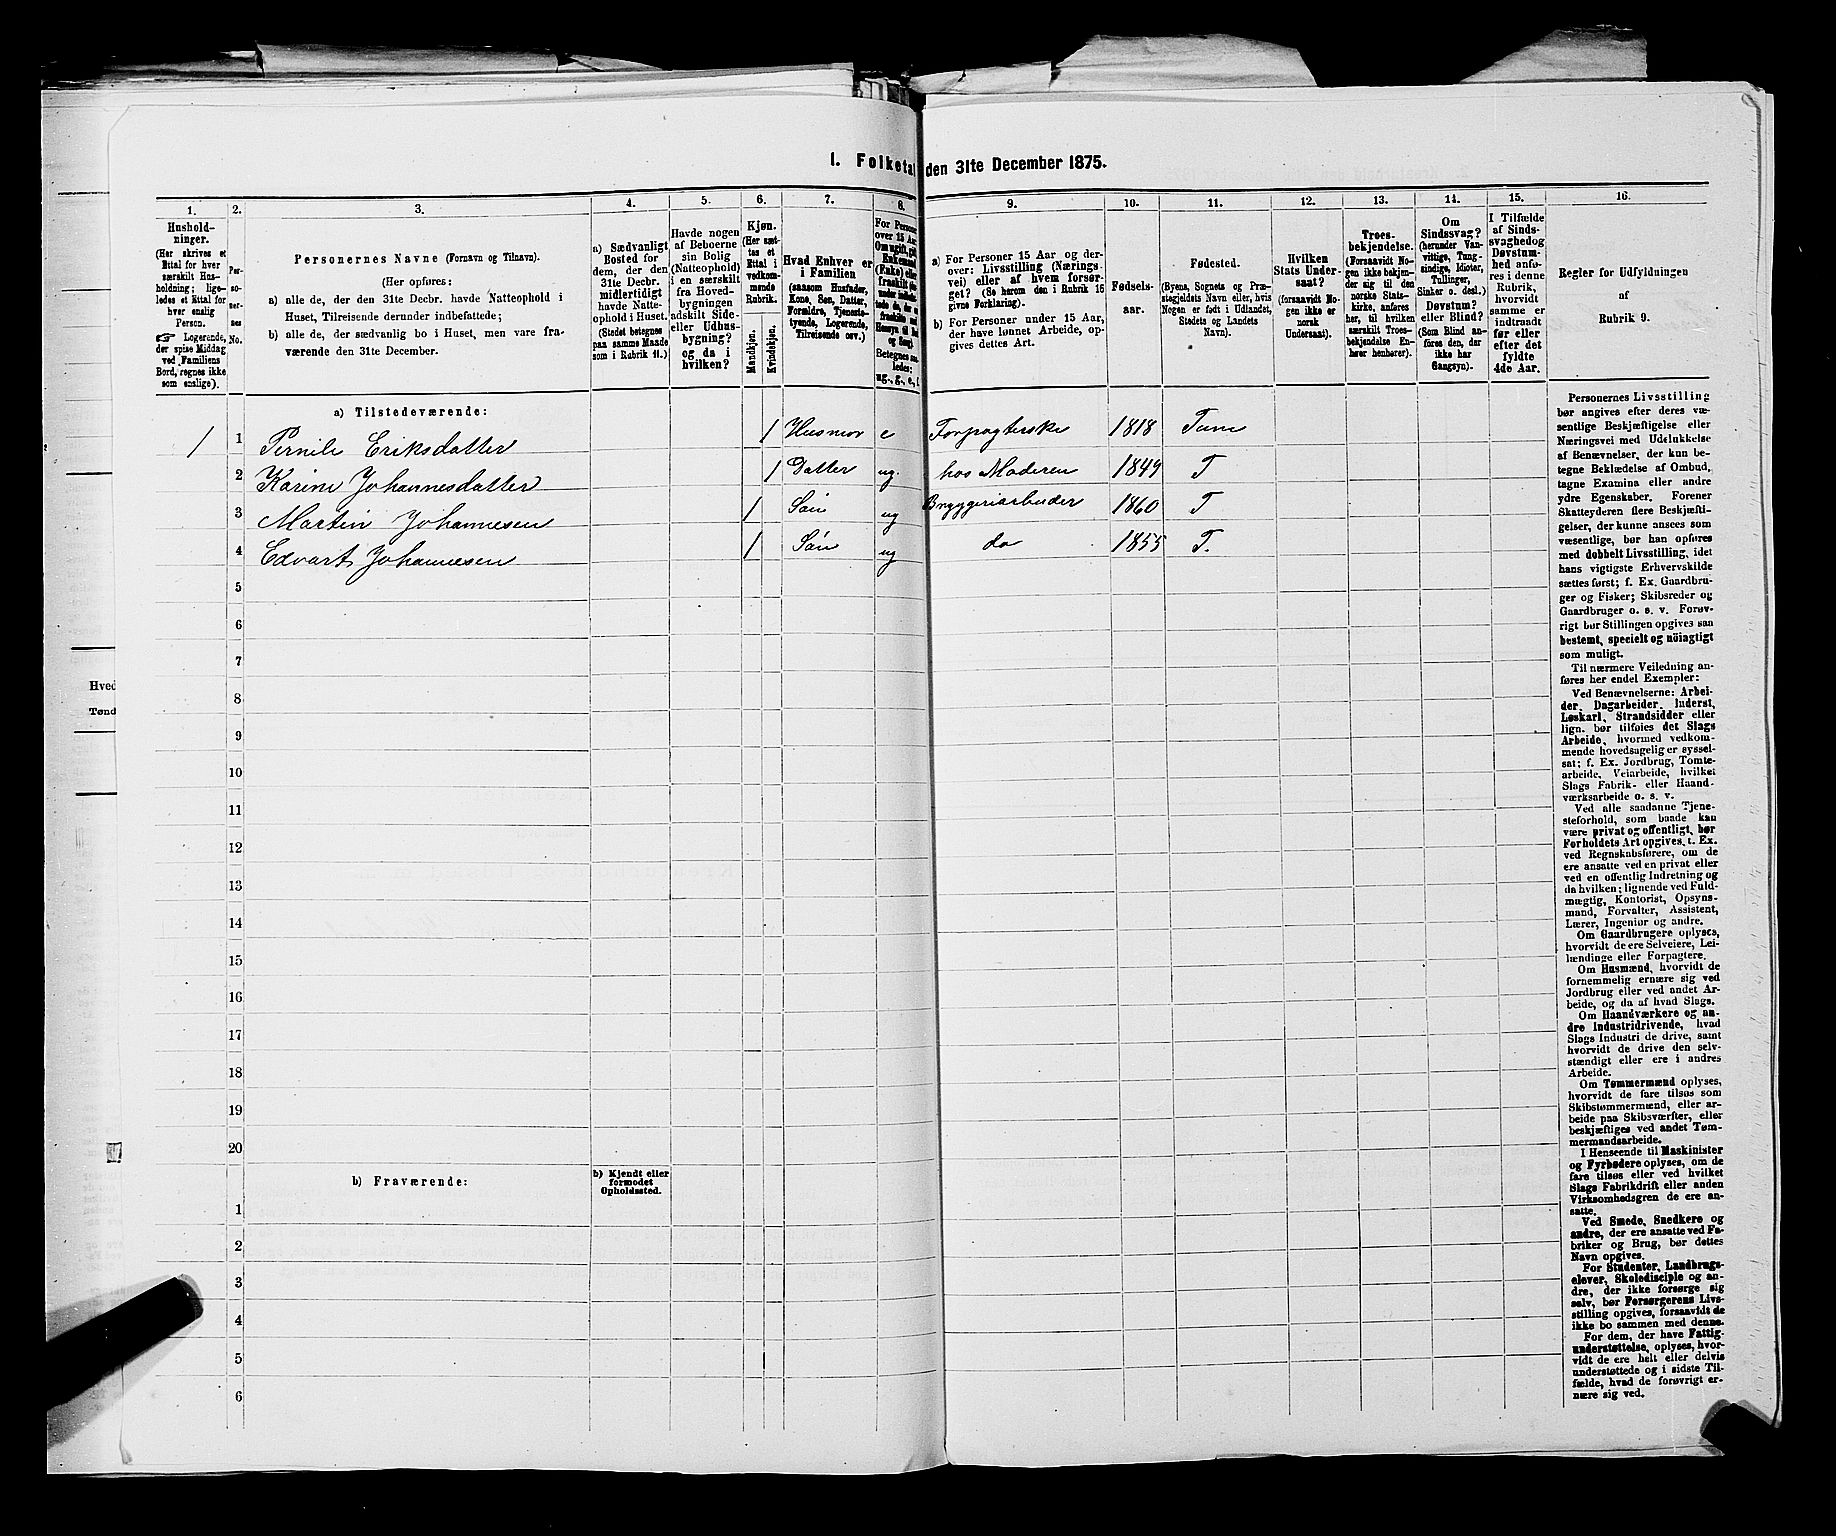 I. Folketal den 31te December 1875.
1.
2.
3.
4.
5.
6.
7.
8.
9.
10.
11.
12.
13.
14.
15.
16.
Hushold-
ninger.
(Her skrives et
Ettal for hver
særskilt Hus-
holdning; lige-
ledes et Ettal for
hver enslig
Person.
☞ Logerende,
der spise Middag
ved Familiens
Bord, regnes ikke
som enslige).
Per-
so-
ner-
nes
No.
Personernes Navne (Fornavn og Tilnavn).
(Her opføres:
a) alle de, der den 31te Decbr. havde Natteophold i
Huset, Tilreisende derunder indbefattede;
b) alle de, der sædvanlig bo i Huset, men vare fra-
værende den 31te December.
a) Sædvanligt
Bosted for
dem, der den
31te Decbr.
midlertidigt
havde Natte-
ophold i Huset.
(Stedet betegnes
paa samme Maade
som i Rubrik 11.)
Havde nogen
af Beboerne
sin Bolig
(Natteophold)
i en særskilt
fra Hoved-
bygningen
adskilt Side-
eller Udhus-
bygning?
og da i
hvilken?
Kjøn.
(Her sæt-
tes et
Ettal i
vedkom-
mende
Rubrik.
Mandkjøn.
Kvindekjøn.
Hvad Enhver er
i Familien
(saasom Husfader,
Kone, Søn, Datter,
Forældre, Tjeneste-
tyende, Logerende,
Tilreisende osv.)
For Persone
over 15 Aar
Betegnes saa-
ledes:
ug., g., e., f.
a) For Personer 15 Aar og der-
over: Livsstilling (Nærings-
vei) eller af hvem forsør-
get? (Se herom den i Rubrik 16
givne Forklaring).
b) For Personer under 15 Aar,
der have lønnet Arbeide, op-
gives dettes Art.
Fødsels-
aar.
Fødested.
(Byens, Sognets og Præ-
stegjeldets Navn eller, hvis
Nogen er født i Udlandet,
Stedets og Landets
Navn).
Hvilken
Stats Under-
saat?
(forsaavidt No-
gen ikke er
norsk
Undersaat).
Troes-
bekjendelse.
(Forsaavidt No-
gen ikke bekjen-
der sig til den
norske Stats-
kirke, anføres
her, til hvilken
særskilt Troes-
bekjendelse En-
hver henhører).
Om
Sindssvag?
(herunder Van-
vittige, Tung-
sindige, Idioter,
Tullinger,
Sinker o. desl.)
Døvstum?
eller Blind?
(Som Blind an-
føres den, der
ikke har
Gangsyn).
I Tilfælde
af Sinds-
svaghed og
Døvstum-
hed anfø-
res i denne
Rubrik,
hvorvidt
samme er
indtraadt
før eller
efter det
fyldte
4de Aar.
Regler for Udfyldningen
af
Rubrik 9.
a) Tilstedeværende:
1 1 Pernile Eriksdatter 1 Husmor e Forpagterske 1818 Tune
2 Karine Johannesdatter 1 Datter ug. hos Moderen 1849 T
3 Martin Johannesen 1 Søn ug Bryggeriarbeider 1860 T
4 Edvart Johannesen 1 Søn ug do 1855 T.
5
6
7
8
9
10
11
12
13
14
15
16
17
18
19
20
b) Fraværende:
b) Kjendt eller
formodet
Opholdssted.
1
2
3
4
5
6
Personernes Livsstilling
bør angives efter deres væ-
sentlige Beskjæftigelse eller
Næringsvei med Udelukkelse
af Benævnelser, der kun be-
tegne Beklædelse af Ombud,
tagne Examina eller andre
ydre Egenskaber. Forener
Skatteyderen flere Beskjæfti-
gelser, der kunne ansees som
væsentlige, bør han opføres
med dobbelt Livsstilling, idet
hans vigtigste Erhvervskilde
sættes først; f. Ex. Gaardbru-
ger og Fisker; Skibsreder og
Gaardbruger o. s. v. Forøv-
rigt bør Stillingen opgives saa
bestemt, specielt og nöiagtigt
som muligt.
Til nærmere Veiledning an-
føres her endel Exempler:
Ved Benævnelserne: Arbei-
der, Dagarbeider, Inderst,
Løskarl, Strandsidder eller
lign. bør tilføies det Slags
Arbeide, hvormed vedkom-
mende hovedsagelig er syssel-
sat; f. Ex. Jordbrug, Tomte-
arbeide, Veiarbeide, hvilket
Slags Fabrik- eller Haand-
værksarbeide o. s. v.
Ved alle saadanne Tjene-
steforhold, som baade kan
være privat og offentligt, bør
Forholdets Art opgives, f. Ex.
ved Regnskabsførere, om de
ere ansatte ved en privat eller
ved en offentlig Indretning og
da hvilken; lignende ved Fuld-
mægtig, Kontorist, Opsyns-
mand, Forvalter, Assistent,
Lærer, Ingeniør og andre.
Om Gaardbrugere oplyses,
hvorvidt de ere Selveiere, Lei-
lændinge eller Forpagtere.
Om Husmænd, hvorvidt de
fornemmelig ernære sig ved
Jordbrug eller ved andet Ar-
beide, og da af hvad Slags.
Om Haandværkere og an-
dre Industridrivende, hvad
Slags Industri de drive, samt
hvorvidt de drive den selv-
stændigt eller ere i andres
Arbeide.
Om Tømmermænd oplyses,
hvorvidt de fare tilsøs som
Skibstømmermænd, eller ar-
beide paa Skibsværfter, eller
beskjæftiges ved andet Tøm-
mermandsarbeide.
I Henseende til Maskinister
og Fyrbødere oplyses, om de
fare tilsøs eller ved hvilket
Slags Fabrikdrift eller anden
Virksomhedsgren de ere an-
satte.
Ved Smede, Snedkere og
andre, der ere ansatte ved Fa-
briker og Brug, bør dettes
Navn opgives.
For Studenter, Landbrugs-
elever, Skoledisciple og an-
dre, der ikke forsørge sig
selv, bør Forsørgerens Livs-
stilling opgives, forsaavidt de
ikke bo sammen med denne.
For dem, der have Fattig-
understøttelse, oplyses, hvor-
vidt de ere helt eller delvis
understøttede og i sidste Til-
fælde, hvad de forøvrigt er-
nære sig ved.
Hved
Tønd